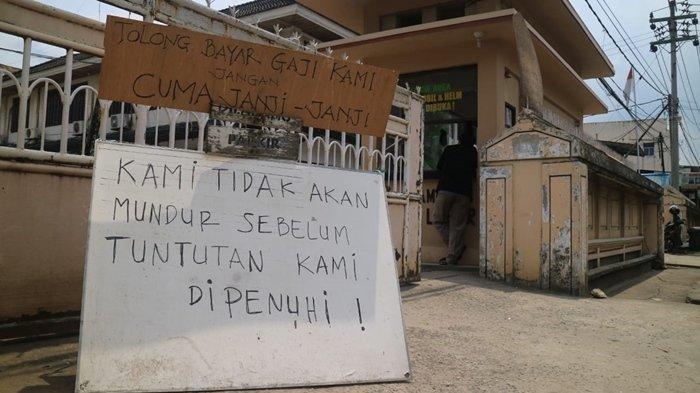 TOLONG BAYAR GAJI KAMI
JANGAN
CUMA JANJI-JANJI
KAMI TIDAK AKAN
MUNDUR SEBELUM
TUNTUTAN KAMI
DIPENUHI!
AREA
MOBIL & HELM
DIBUKA!